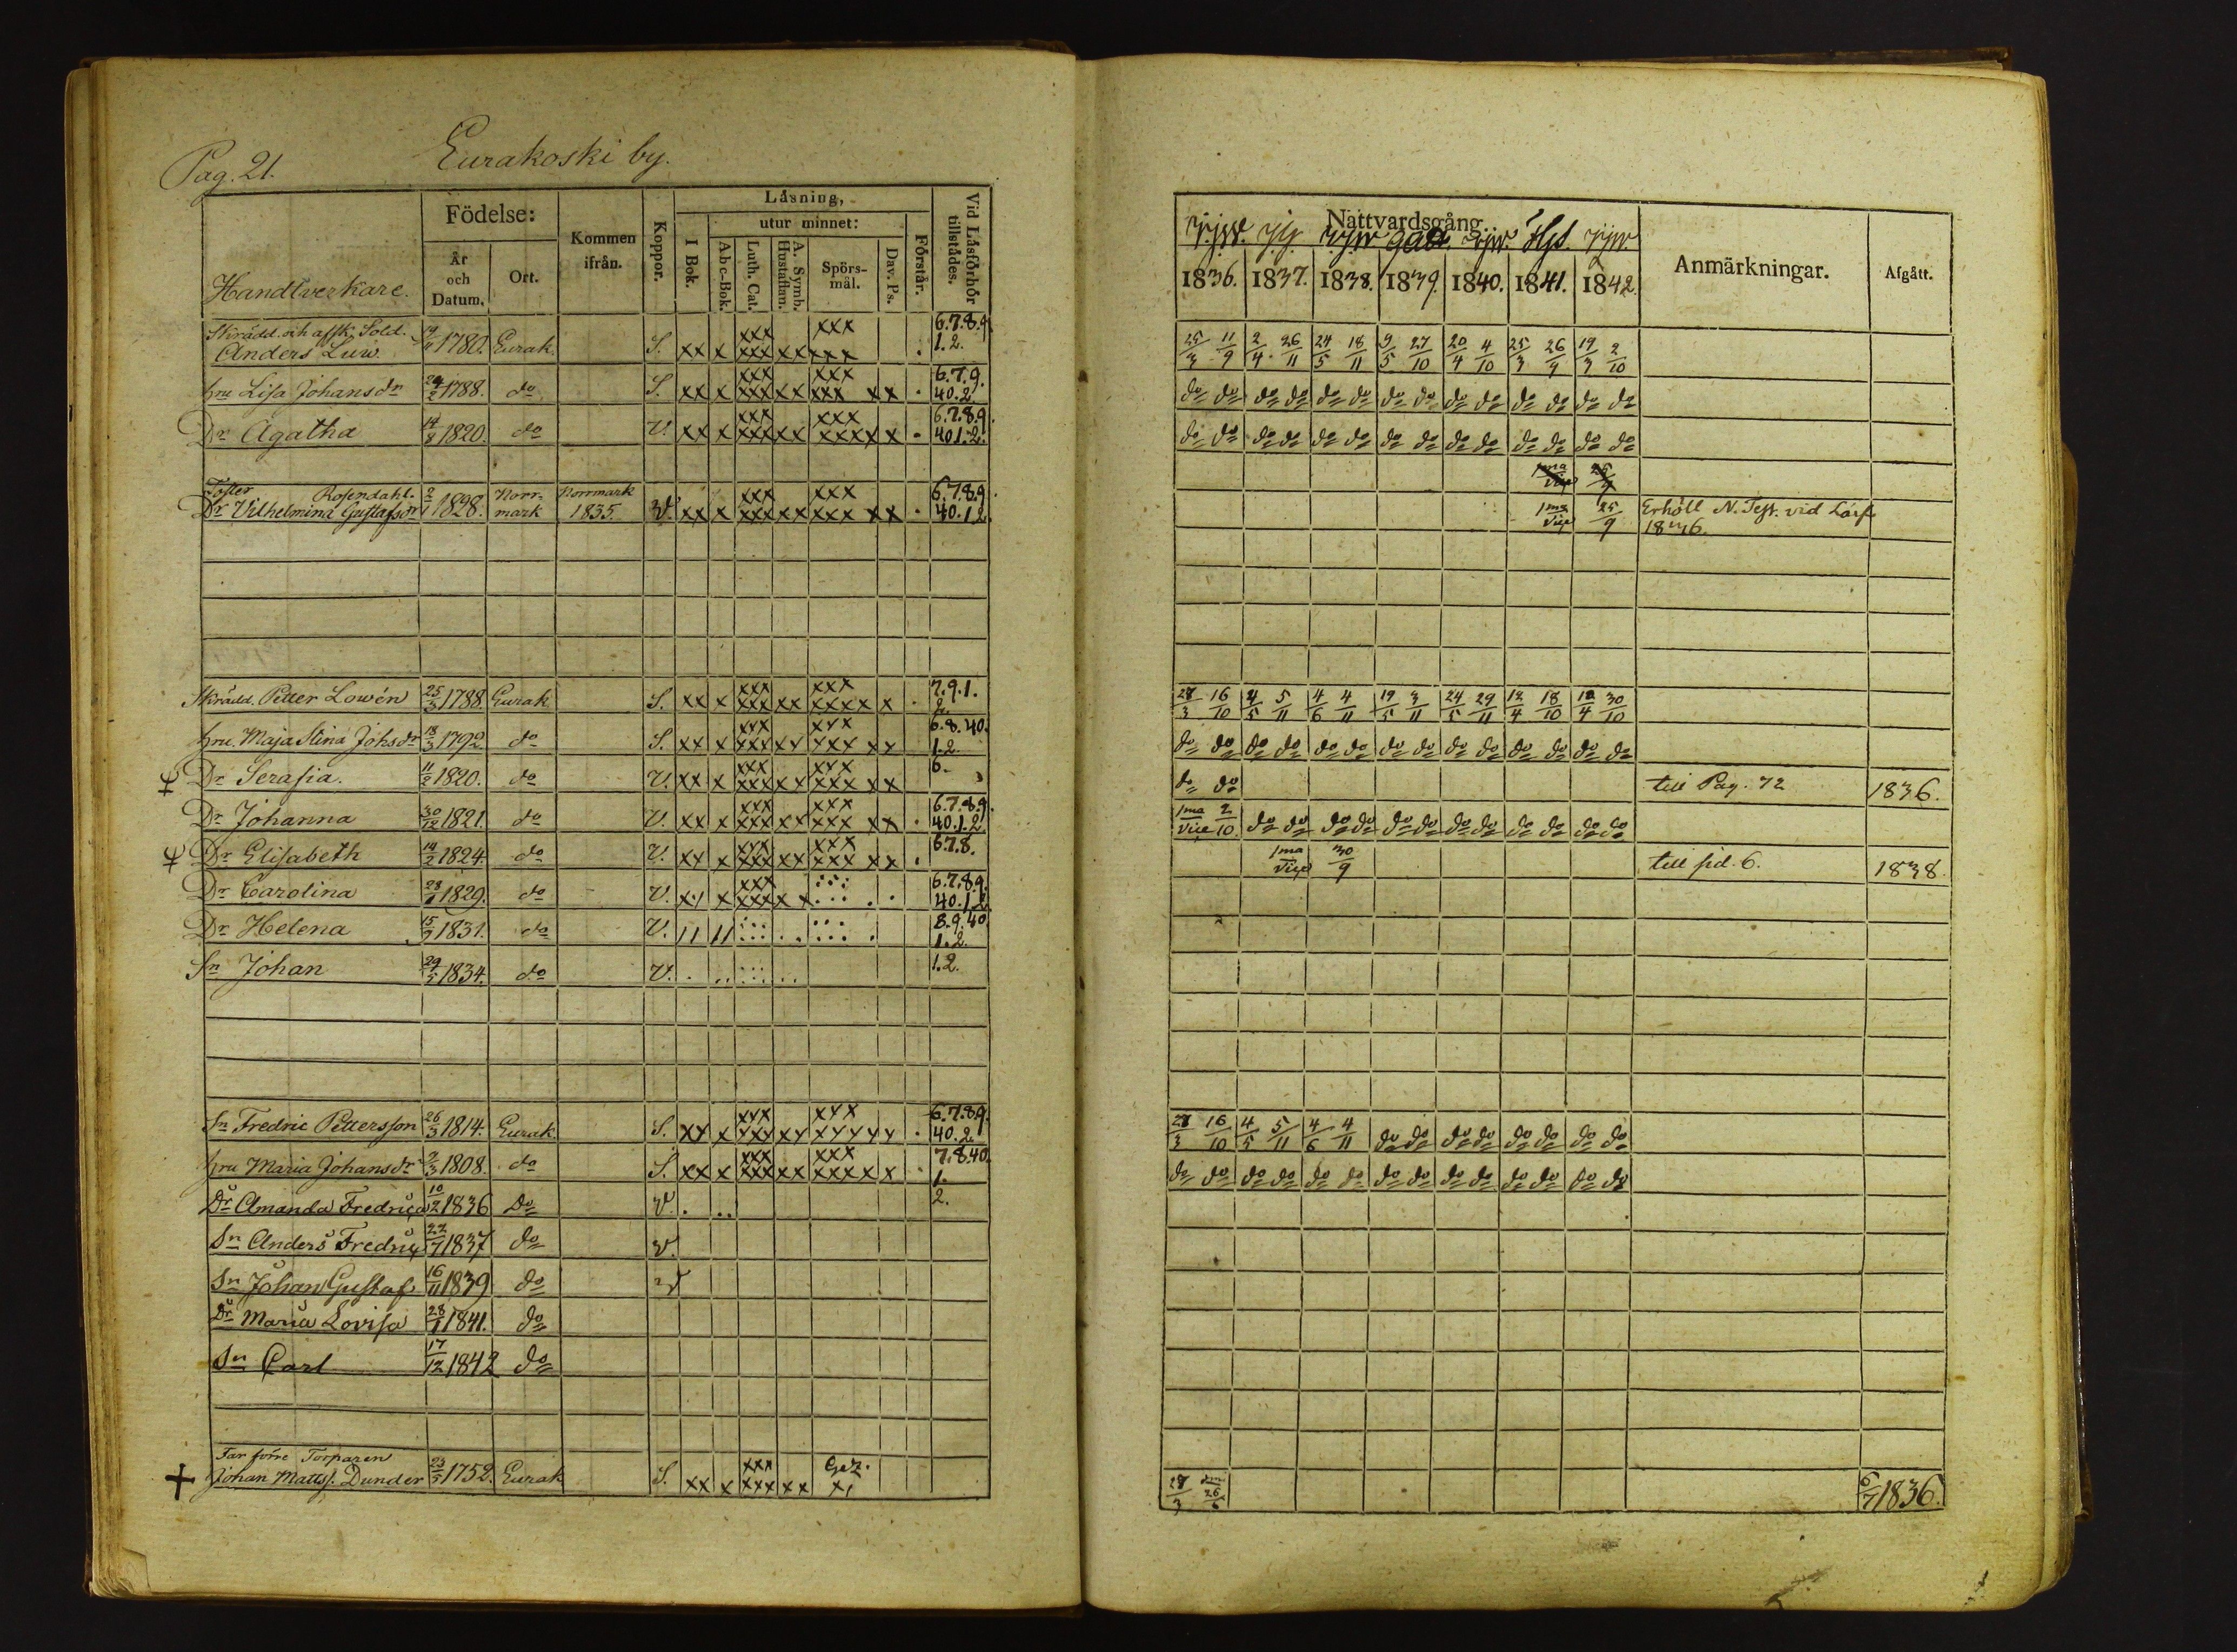 Pag. 21. Eurakoski by.
Handtverkare. Födelse: År och Datum. Ort. Kommen ifrån. Koppor. Låsning, I Bok. utur minnet: Abc-Bok. Luth. Cat. A. Symb. Hustaflan. Spörs-mål. Dav. Ps. Förstår. Vid Låsförhör tillstådes.
Nattvardsgång. 1836. 1837. 1838. 1839. 1840. 1841. 1842. Anmärkningar. Afgått.
Skrädd. och afsk. Sold.
Anders Luw 1780. Eurak. S. xx x xxx xxx xx xxx xxx 6.7.8.9. 1.2. 25/3 11/9 2/4 26/11 24/5 18/11 9/5 27/10 20/4 4/10 25/3 26/9 19/3 2/10
hru Lisa Johansdr 1788. do S. xx x xxx xxx xx xxx xxx xx 6.7.9. 40.2. do do do do do do do do do do do do do do
Dr Agatha 14/8 1820. do V. xx x xxx xxx xx xxx xxxx x 6.7.8.9. 40.1.2. do do do do do do do do do do do do do do
Foster Rosendahl.
Dr Vilhelmina Gustafsdr 2/1 1828. Norrmark Norrmark 1835. V. xx x xxx xxx xx xxx xxx xx 6.7.8.9. 40.1.2. 1ma Vice 25/9 Erhöll N. Test. vid Läsf.
1836.
Skrädd. Petter Lowén 25/3 1788. Eurak S. xx x xxx xxx xx xxx xxxx x 7.9.1. 2. 28/3 16/10 4/5 5/11 4/6 4/11 19/5 3/11 24/5 29/11 12/4 18/10 12/4 30/10
hru. Maja Stina Johsdr 18/3 1792. do S. xx x xxx xxx xx xxx xxx xx 6.8.40. 1.2. do do do do do do do do do do do do do do
Dr Serafia. 11/2 1820. do V. xx x xxx xxx xx xxx xxx xx 6. do do till Pag. 72 1836.
Dr Johanna 30/12 1821. do V. xx x xxx xxx xx xxx xxx xx 6.7.8.9. 40.1.2. 1ma Vice 2/10 do do do do do do do do do do do do
Dr Elisabeth 14/2 1824. do V. xx x xxx xxx xx xxx xxx xx 6.7.8. 1ma Vice 30/9 till sid. 6. 1838.
Dr Carolina 1829. do V. xx x xxx xxx xx 6.7.8.9. 40.1.2.
Dr Helena 1831. do V. 8.9.40 1.2.
Sn Johan 29/5 1834. do V. 1.2.
Sn Fredric Pettersson 26/3 1814. Eurak S. xx x xxx xxx xx xxx xxxx x 6.7.8.9. 40.2. 28/3 16/10 4/5 5/11 4/6 4/11 do do do do do do do do
hru Maria Johansdr 2/3 1808. do S. xx x xxx xxx xx xxx xxxx x 7.8.40. 1. do do do do do do do do do do do do do do
Dr Amanda Fredrica 10/2 1836 Do V. 2.
Sn Anders Fredric 22/7 1837 do V.
Sn Johan Gustaf 16/11 1839 do V
Dr Maria Lovisa 28/1 1841. do
Sn Carl 17/12 1842 do
Far förre Torparen
Johan Mattss. Dunder 23/5 1752. Eurak S. xx x xxx xxx xx 28/3 26/6 6/7 1836.